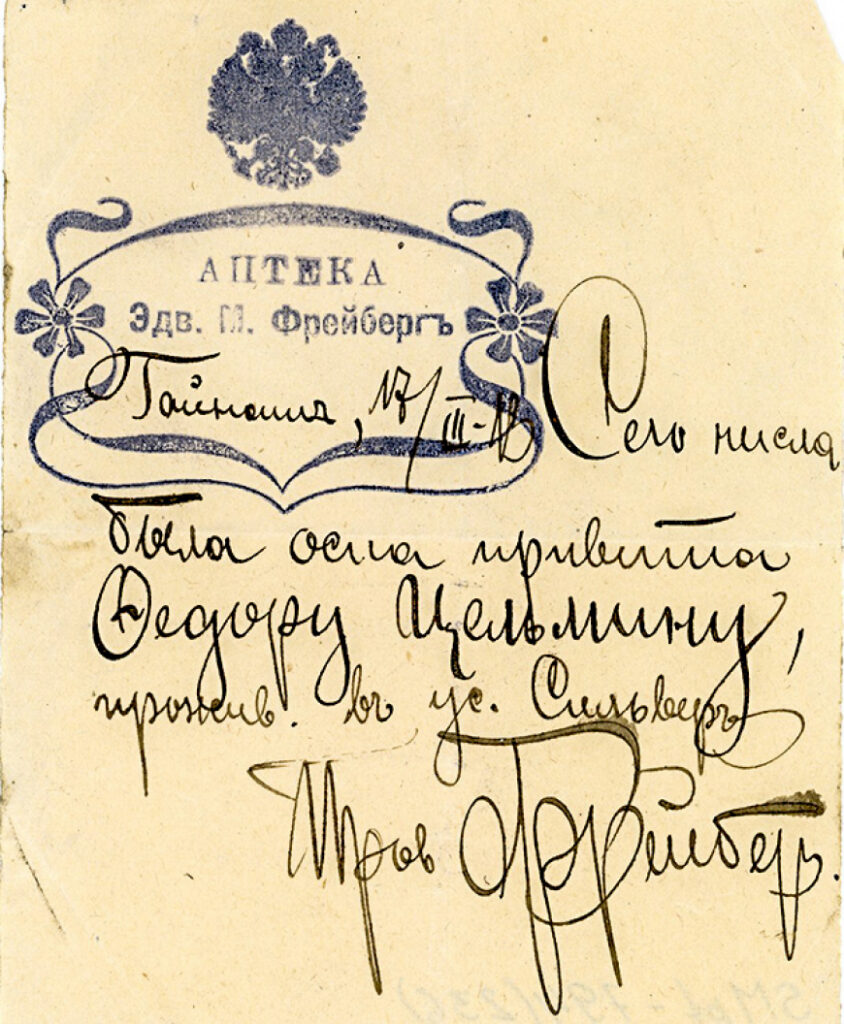 АПТЕКА
Эдв. М. Фрейбергъ
Гайнашъ, 17/III-12 Сего числа
была оспа привита
Федору Цельмину,
прожив. въ ус. Сильверъ
Пров Фрейберг.